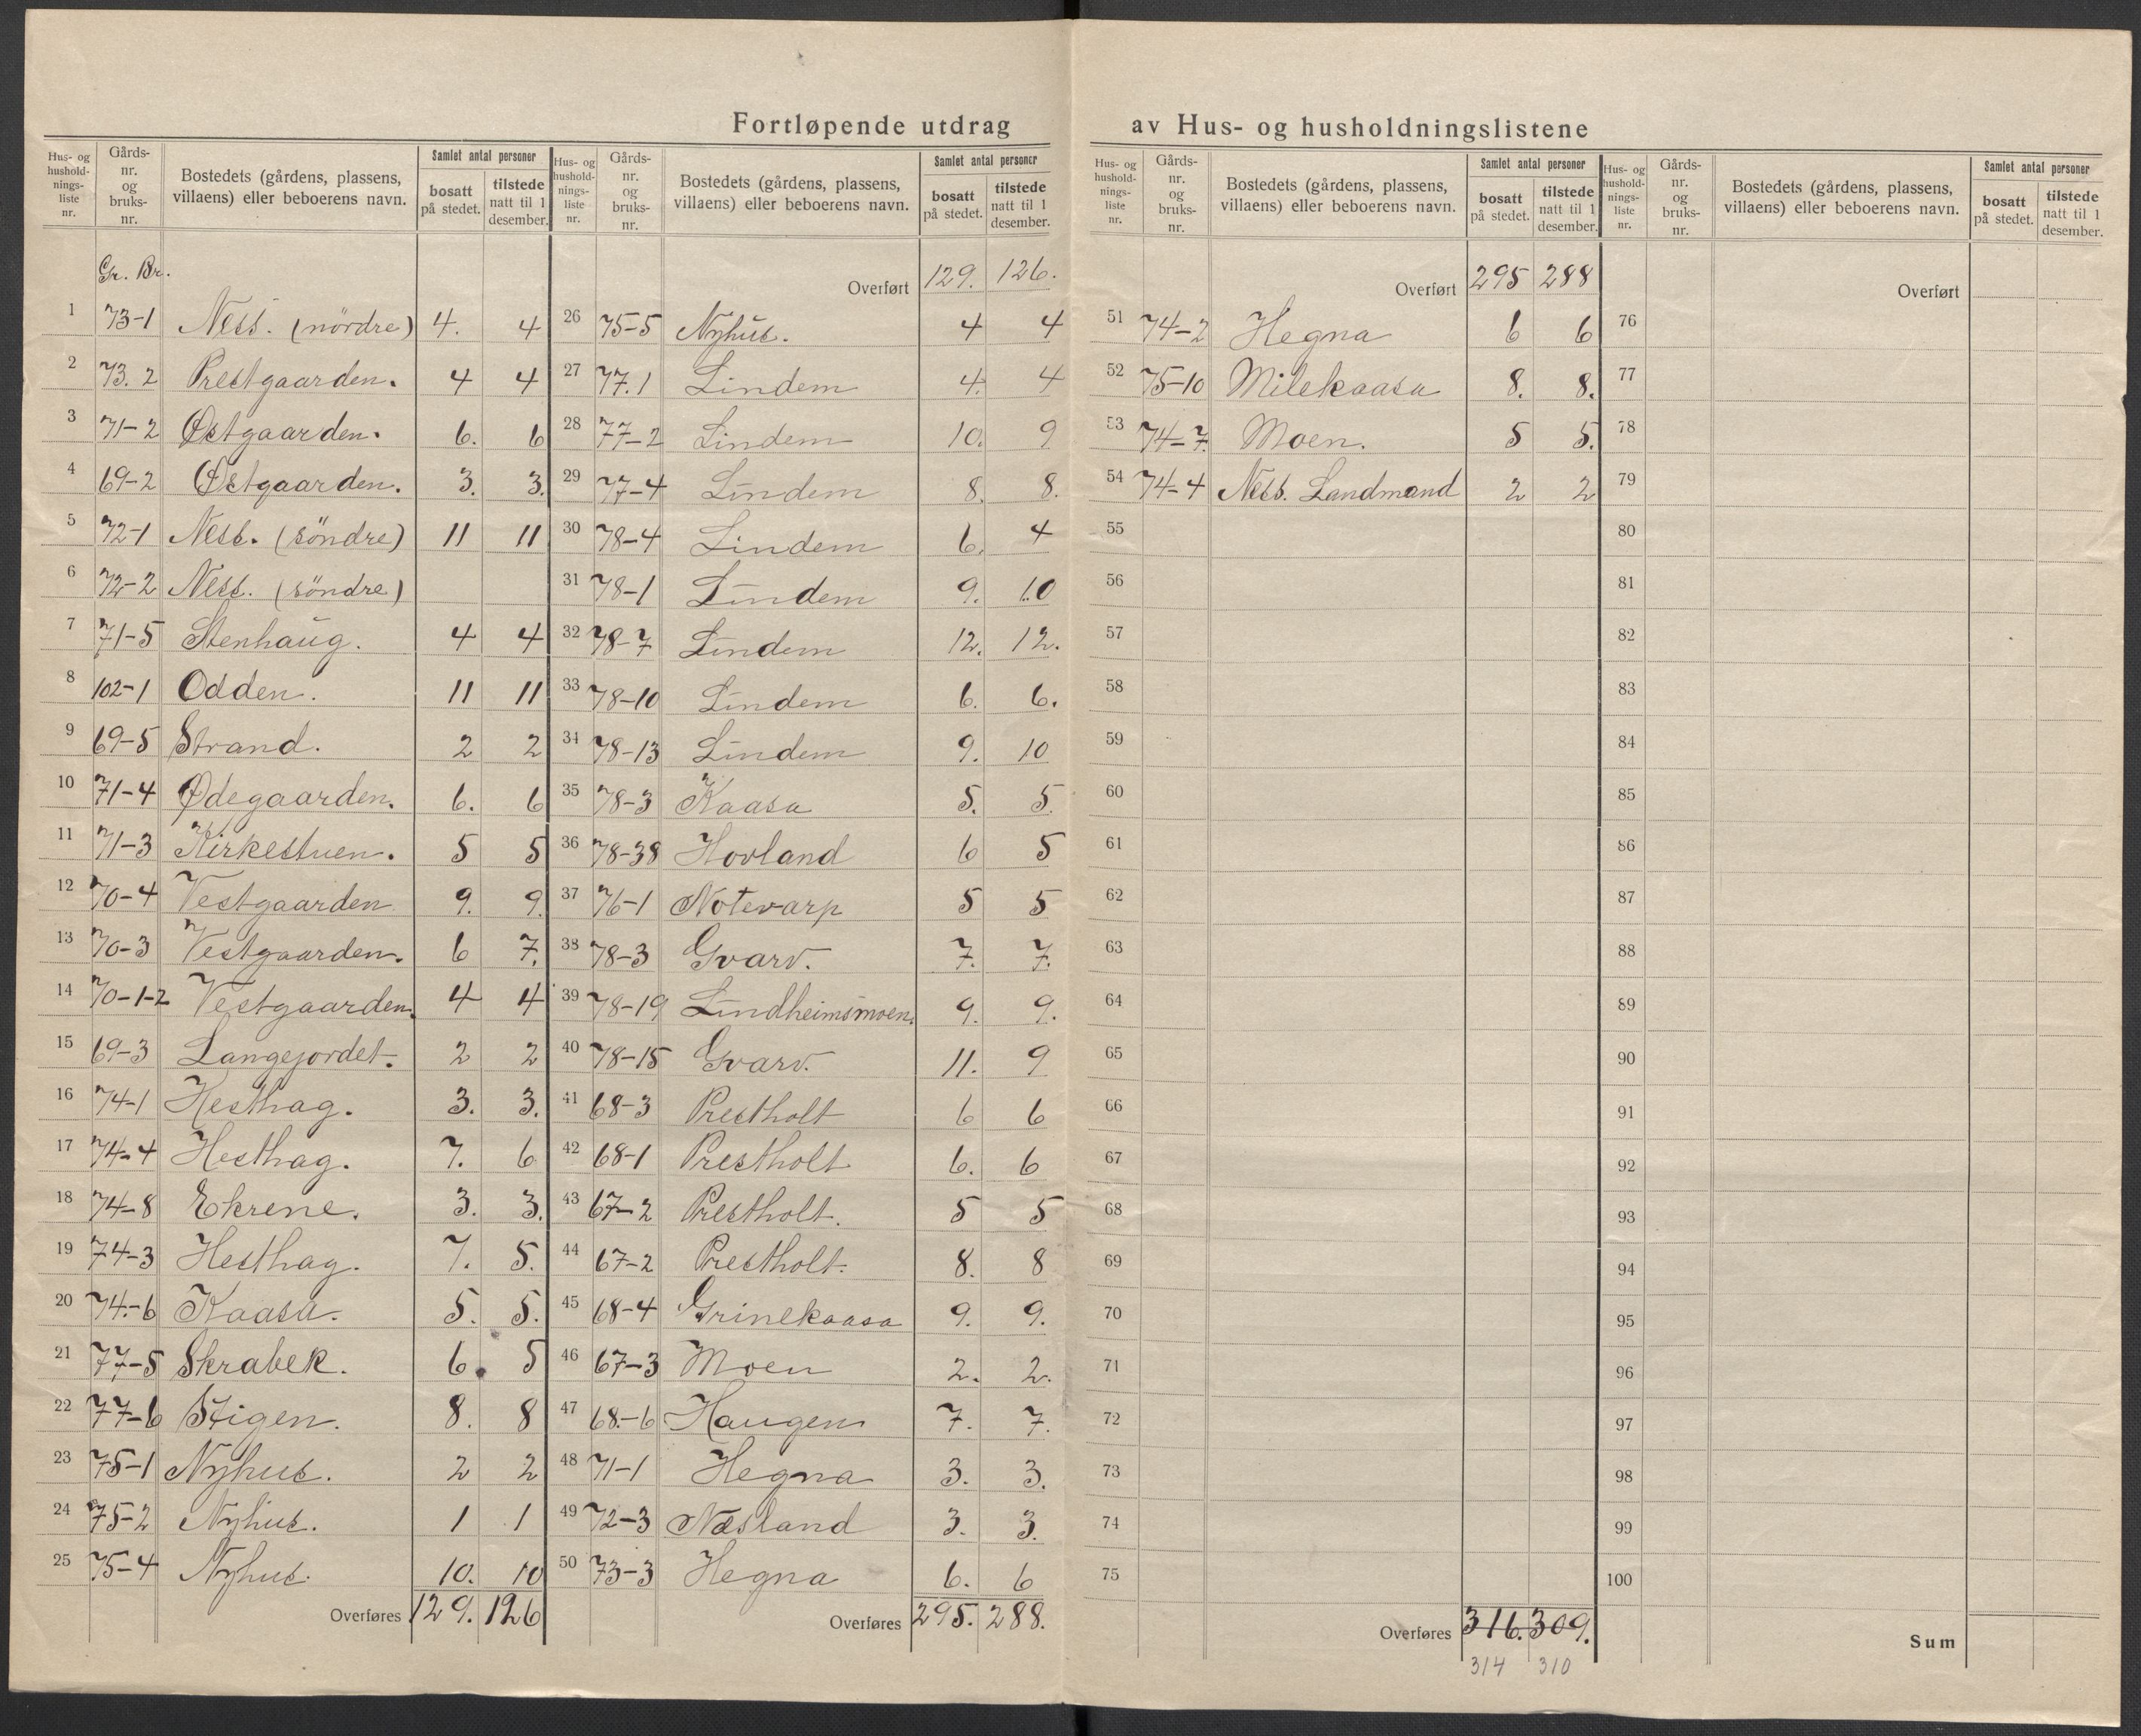 Fortløpende utdrag av Hus- og husholdningslistene
Hus- og hushold-nings-liste nr. Gårds-nr. og bruks-nr. Bostedets (gårdens, plassens, villaens) eller beboerens navn. Samlet antal personer bosatt på stedet. tilstede natt til 1 desember.
Gr. Br.
1 73-1 Ness. (nördre) 4. 4
2 73. 2 Prestgaarden. 4 4
3 71-2 Østgaarden. 6. 6
4 69-2 Østgaarden. 3. 3.
5 72-1 Ness. (söndre) 11 11
6 72-2 Ness. (söndre)
7 71-5 Stenhaug. 4 4
8 102-1 Odden. 11 11
9 69-5 Strand. 2 2
10 71-4 Ødegaarden. 6. 6
11 71-3 Kirkestuen. 5 5
12 70-4 Vestgaarden 9. 9.
13 70-3 Vestgaarden. 6 7.
14 70-1-2 Vestgaarden. 4 4
15 69-3 Langejordet. 2 2
16 74-1 Hesthag. 3. 3.
17 74-4 Hesthag. 7. 6
18 74-8 Ekrene. 3. 3.
19 74-3 Hesthag. 7. 5.
20 74-6 Kaasa. 5. 5.
21 77-5 Skrabek. 6. 5
22 77-6 Stigen. 8. 8
23 75-1 Nyhus. 2 2
24 75-2 Nyhus. 1 1
25 75-4 Nyhus. 10. 10
Overføres 129. 126
Hus- og hushold-nings-liste nr. Gårds-nr. og bruks-nr. Bostedets (gårdens, plassens, villaens) eller beboerens navn. Samlet antal personer bosatt på stedet. tilstede natt til 1 desember.
Overført 129. 126.
26 75-5 Nyhus. 4 4
27 77.1 Lindem 4. 4
28 77-2 Lindem 10. 9
29 77-4 Lindem 8. 8.
30 78-4 Lindem 6. 4
31 78-1 Lindem 9. 10
32 78-7 Lindem 12. 12.
33 78-10 Lindem 6. 6.
34 78-13 Lindem 9. 10
35 78-3 Kaasa 5. 5
36 78-38 Hovland 6 5
37 76-1 Notevarp 5 5
38 78-3 Gvarv. 7. 7.
39 78-19 Lindheimsmoen. 9. 9.
40 78-15 Gvarv. 11. 9
41 68-3 Prestholt 6 6
42 68-1 Prestholt 6. 6
43 67-2 Prestholt. 5 5
44 67-2 Prestholt. 8. 8
45 68-4 Grinekaasa 9. 9.
46 67-3 Moen 2. 2.
47 68-6 Haugen 7. 7.
48 71-1 Hegna 3. 3.
49 72-3 Næsland 3. 3.
50 73-3 Hegna 6. 6
Overføres 295. 288.
Hus- og hushold-nings-liste nr. Gårds-nr. og bruks-nr. Bostedets (gårdens, plassens, villaens) eller beboerens navn. Samlet antal personer bosatt på stedet. tilstede natt til 1 desember.
Overført 295 288
51 74-2 Hegna 6 6
52 75-10 Milekaasa 8. 8.
53 74-7 Moen. 5 5.
54 74-4 Ness. Landmand 2 2
55
56
57
58
59
60
61
62
63
64
65
66
67
68
69
70
71
72
73
74
75
Overføres 316. 309.
314 310
Hus- og hushold-nings-liste nr. Gårds-nr. og bruks-nr. Bostedets (gårdens, plassens, villaens) eller beboerens navn. Samlet antal personer bosatt på stedet. tilstede natt til 1 desember.
Overført
76
77
78
79
80
81
82
83
84
85
86
87
88
89
90
91
92
93
94
95
96
97
98
99
100
Sum